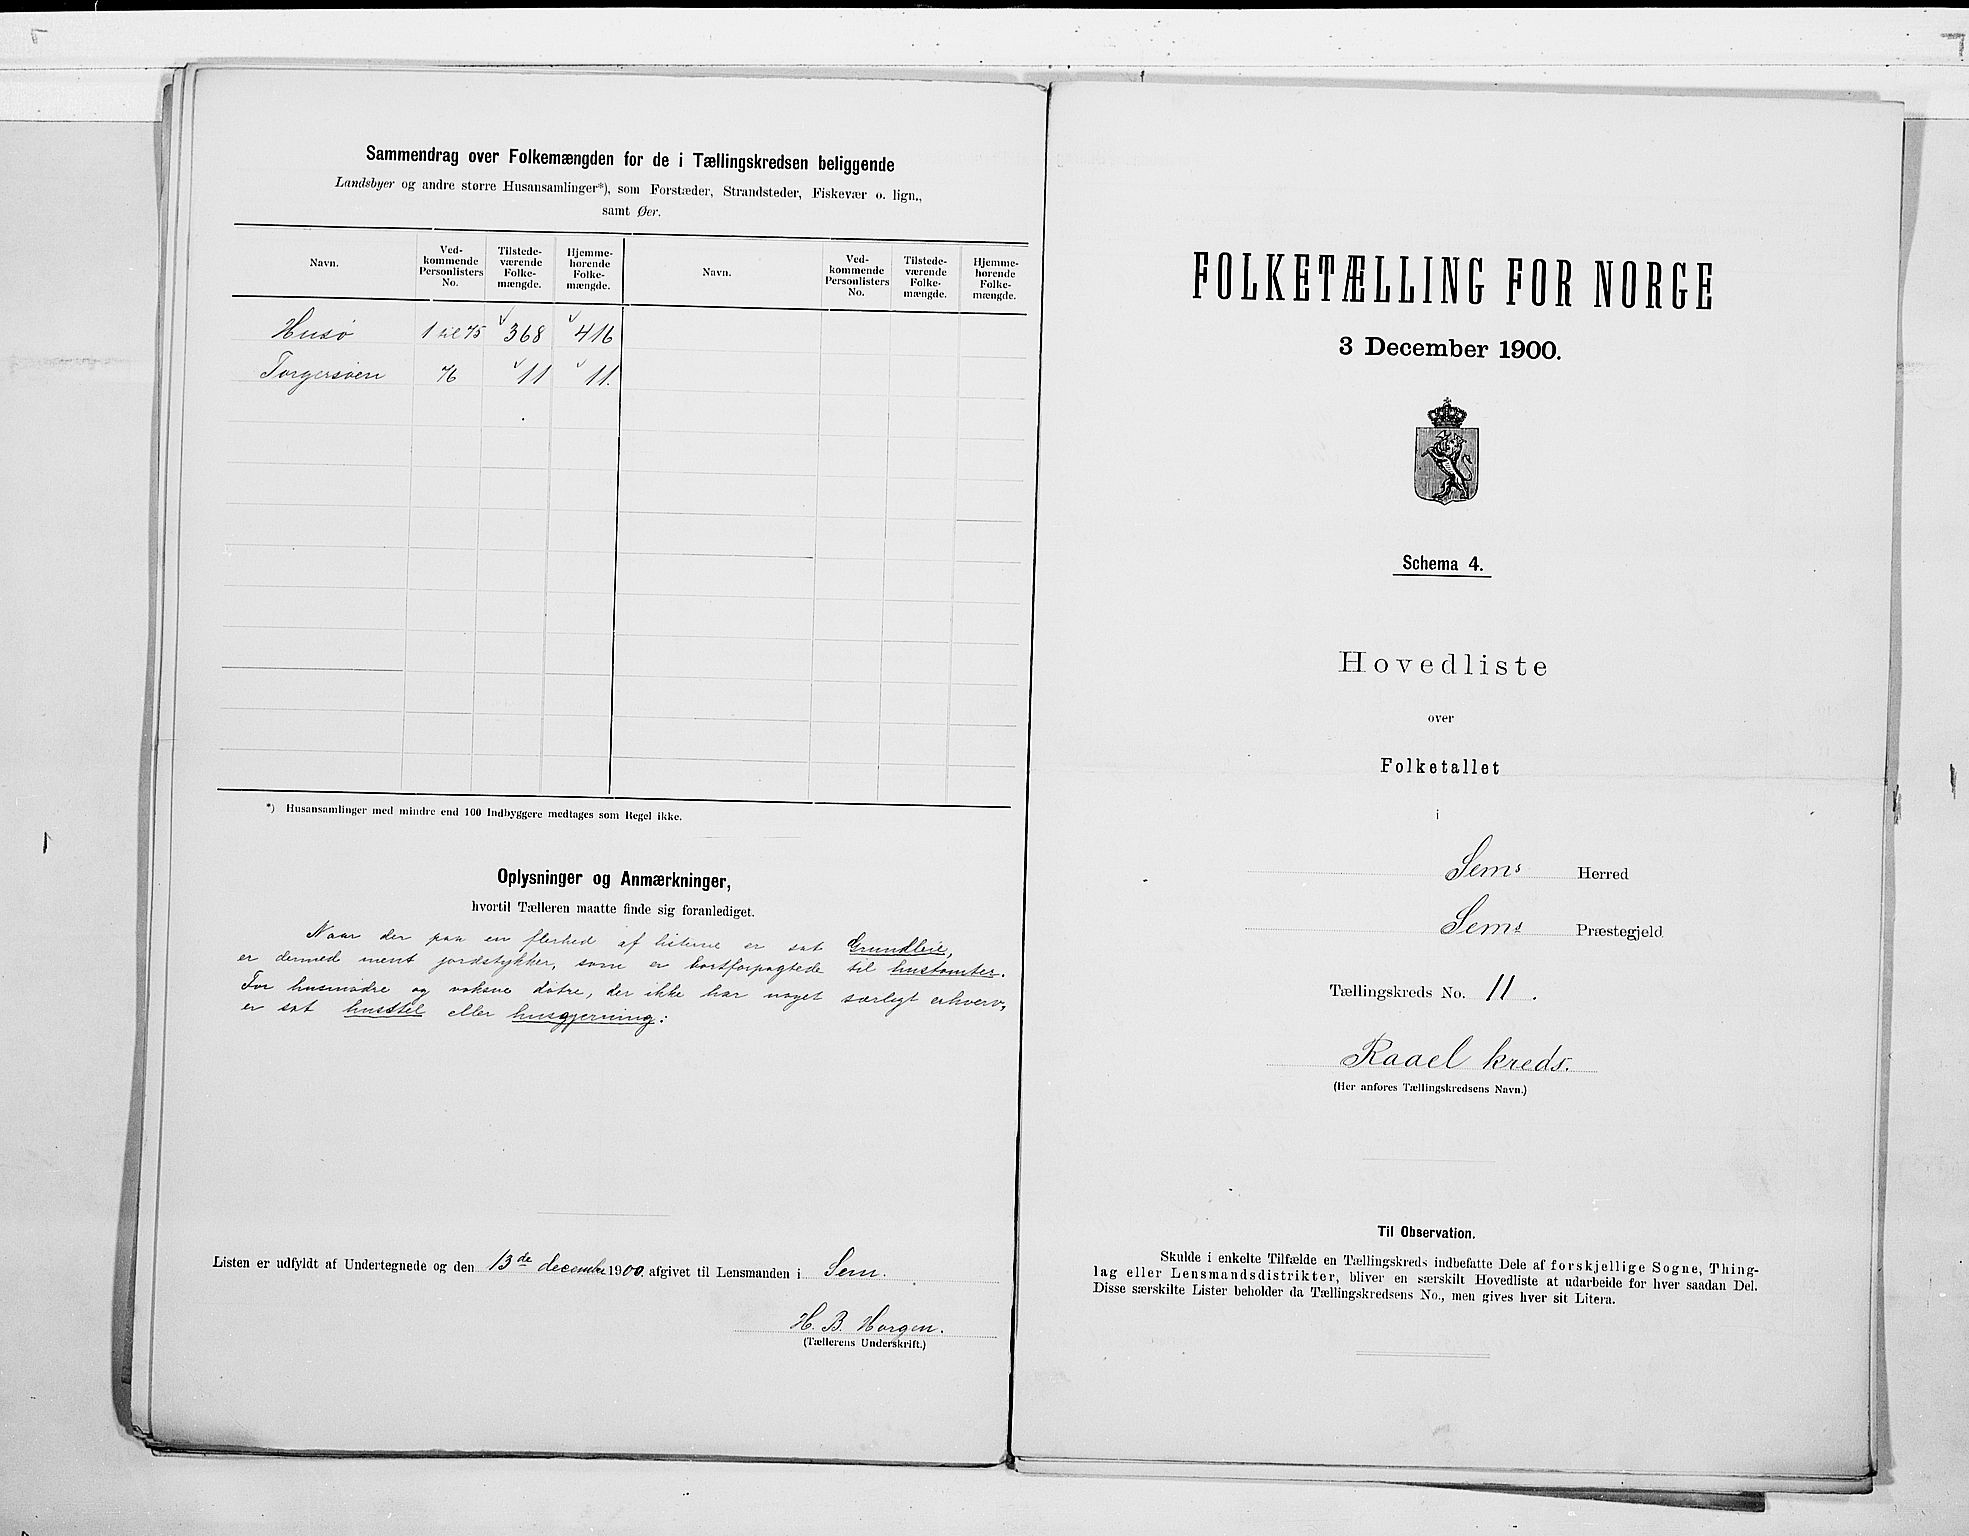 Sammendrag over Folkemængden for de i Tællingskredsen beliggende
Landsbyer og andre større Husansamlinger*), som Forstæder, Strandsteder, Fiskevær o. lign.,
samt Øer.
Navn. Ved-kommende Personlisters No. Tilstede-værende Folke-mængde. Hjemme-hørende Folke-mængde. Navn. Ved-kommende Personlisters No. Tilstede-værende Folke-mængde. Hjemme-hørende Folke-mængde.
Husø 1 til 75 368 416
Torgersøen 76 11 11.
*) Husansamlinger med mindre end 100 Indbyggere medtages som Regel ikke.
Oplysninger og Anmærkninger,
hvortil Tælleren maatte finde sig foranlediget.
Naar der paa en flerhed af listerne er sat Grundleie,
er dermed ment jordstykker, som er bortforpagtede til hustomter.
For husmødre og voksne døtre, der ikke har noget særligt erhverv,
er sat husstel eller husgjerning:
Listen er udfyldt af Undertegnede og den 13de december 1900 afgivet til Lensmanden i Sem.
H. B. Horgen.
(Tællerens Underskrift.)
FOLKETÆLLING FOR NORGE
3 December 1900.
Schema 4.
Hovedliste
over
Folketallet
i
Sems Herred
Sems Præstegjeld
Tællingskreds No. 11.
Raael kreds.
(Her anføres Tællingskredsens Navn.)
Til Observation.
Skulde i enkelte Tilfælde en Tællingskreds indbefatte Dele af forskjellige Sogne, Thing-
lag eller Lensmandsdistrikter, bliver en særskilt Hovedliste at udarbeide for hver saadan Del.
Disse særskilte Lister beholder da Tællingskredsens No., men gives hver sit Litera.